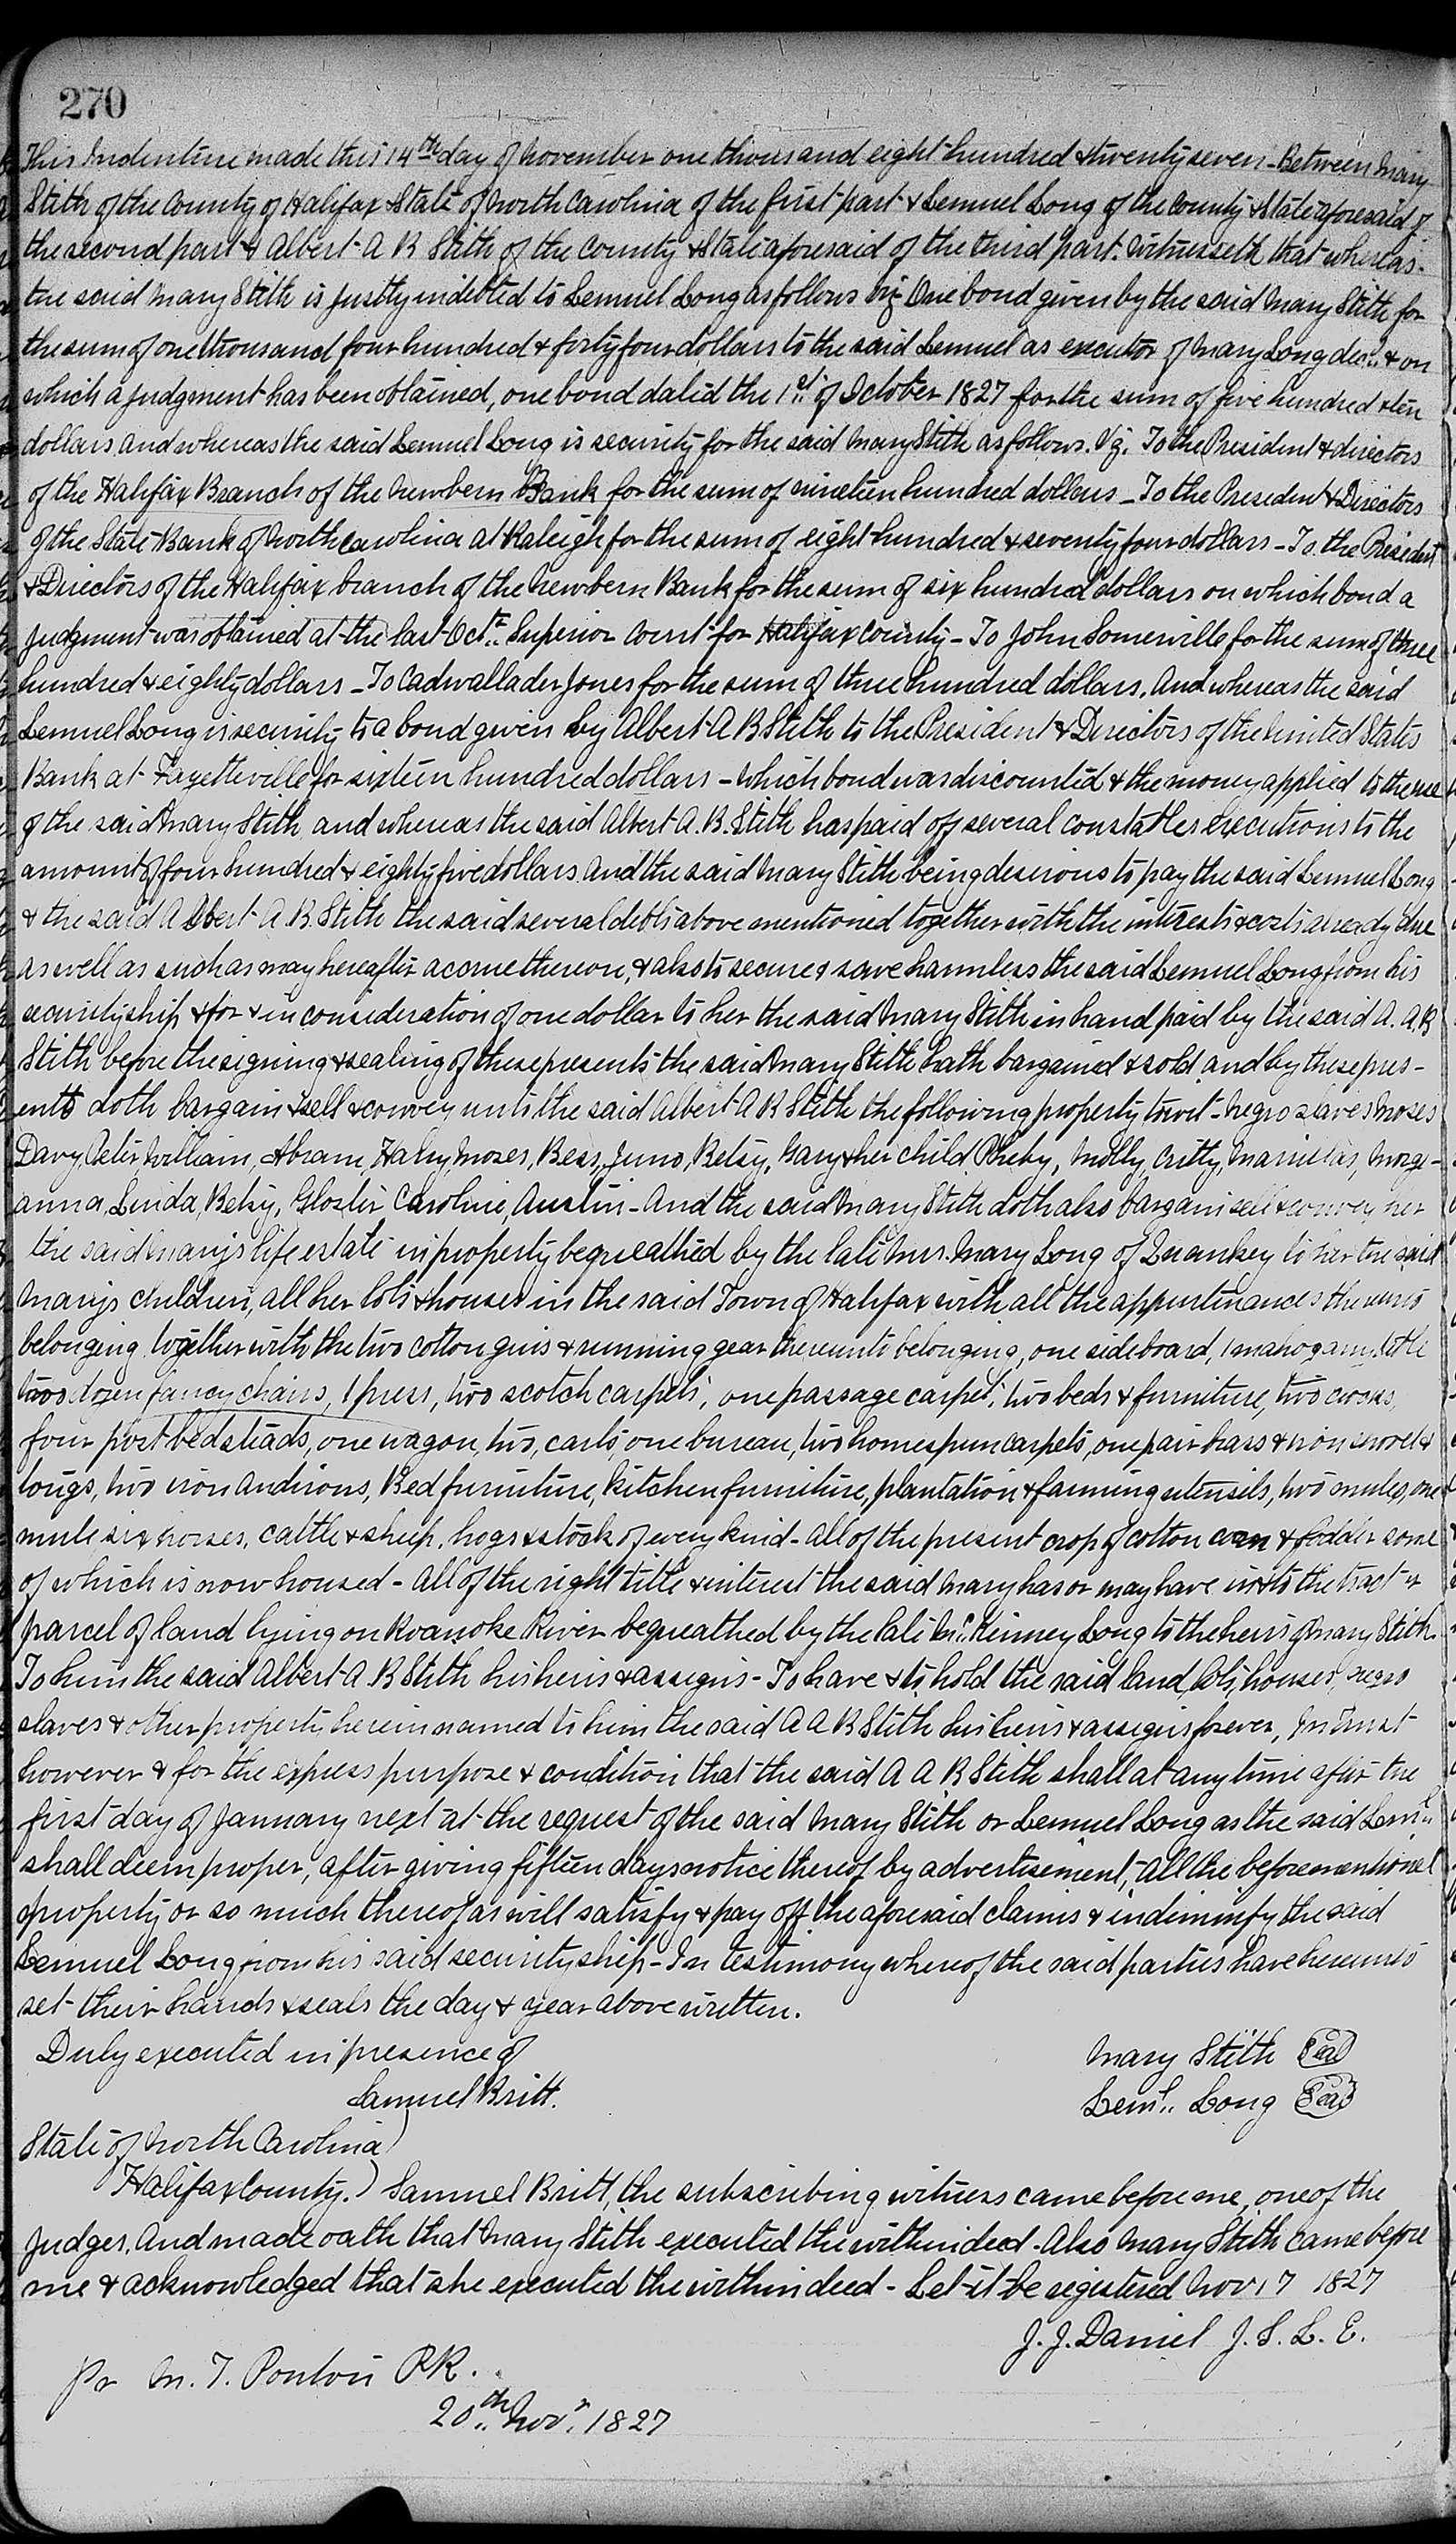 270
This Indenture made this 14th day of November one thousand eight hundred & twenty seven - Between Mary
Stith of the County of Halifax & State of North Carolina of the first part & Lemuel Long of the County & State aforesaid of
the second part & Albert A B Stith of the County & State aforesaid of the third part. Witnesseth that whereas
the said Mary Stith is justly indebted to Lemuel Long as follows viz One bond given by the said Mary Stith for
the sum of one thousand four hundred & forty four dollars to the said Lemuel as executor of Mary Long decd. & on
which a judgment has been obtained, one bond dated the 1st of October 1827 for the sum of five hundred & ten
dollars and whereas the said Lemuel Long is security for the said Mary Stith as follows. Viz. To the President & directors
of the Halifax Branch of the Newbern Bank for the sum of nineteen hundred dollars - To the President & Directors
of the State Bank of North Carolina at Raleigh for the sum of eight hundred & seventy four dollars - To the President
& Directors of the Halifax branch of the Newbern Bank for the sum of six hundred dollars on which bond a
judgment was obtained at the last Octr. Superior Court for Halifax County - To John Somerville for the sum of three
hundred & eighty dollars - To Cadwallader Jones for the sum of three hundred dollars. And whereas the said
Lemuel Long is security to a bond given by Albert A B Stith to the President & Directors of the United States
Bank at Fayetteville for sixteen hundred dollars - which bond was discounted & the money applied to the use
of the said Mary Stith and whereas the said Albert A. B. Stith has paid off several constables executions to the
amount of four hundred & eighty five dollars and the said Mary Stith being desirous to pay the said Lemuel Long
& the said Albert A. B. Stith the said several debts above mentioned together with the interests & costs already due
as well as such as may hereafter accrue thereon, & also to secure & save harmless the said Lemuel Long from his
securityship & for & in consideration of one dollar to her the said Mary Stith in hand paid by the said A. A. B
Stith before the signing & sealing of these presents the said Mary Stith hath bargained & sold and by these pres-
ents doth bargain & sell & convey unto the said Albert A B Stith the following property towit - negro slaves Moses
Davy, Peter, William, Abram, Moses, Bess, Juno, Betsy, Nary & her child Pheby, Molly, Critty,
anna, Linda, Betsy, Gloster Caroline, Austin - And the said Mary Stith doth also bargain sell & convey her
the said Mary's life estate in property bequeathed by the late Mrs. Mary Long of Quankey to her the said
Mary's children, all her lots & houses in the said Town of Halifax with all the appurtenances thereunto
belonging together with the two cotton gins & running gear thereunto belonging, one sideboard, 1 mahogany
two dozen fancy chairs, 1 press, two scotch carpets, one passage carpet, two beds & furniture, two
four post bedsteads, one wagon, two, carts, one bureau, two homespun carpets, one pair brass & iron shovel &
tongs, two iron andirons, Bed furniture, kitchen furniture, plantation & farming utensils, two mules, one
mule six horses, cattle & sheep, hogs & stock of every kind - all of the present crop of cotton corn & fodder some
of which is now housed - all of the right title & interest the said Mary has or may have in & to the tract or
parcel of land lying on Roanoke River bequeathed by the late McKinney Long to the heirs of Mary Stith
To him the said Albert A B Stith his heirs & assigns - To have & to hold the said land, lots, houses, negro
slaves & other property herein named to him the said A A B Stith his heirs & assigns forever, In trust
however & for the express purpose & condition that the said A A B Stith shall at any time after the
first day of January next at the request of the said Mary Stith or Lemuel Long as the said Leml.
shall deem proper, after giving fifteen days notice thereof by advertisement, all the beforementioned
property or so much thereof as will satisfy & pay off the aforesaid claims & indemnify the said
Lemuel Long from his said securityship - In testimony whereof the said parties have hereunto
set their hands & seals the day & year above written.
Duly executed in presence of Mary Stith Seal
Samuel Britt. Leml. Long Seal
State of North Carolina)
Halifax County.) Samuel Britt, the subscribing witness came before me, one of the
Judges, And made oath that Mary Stith executed the within deed - Also Mary Stith came before
me & acknowledged that she executed the within deed - Let it be registered Nov 17 1827
J. J. Daniel J. S. L. E.
Pr M. T. Ponton P.R.
20th Novr. 1827